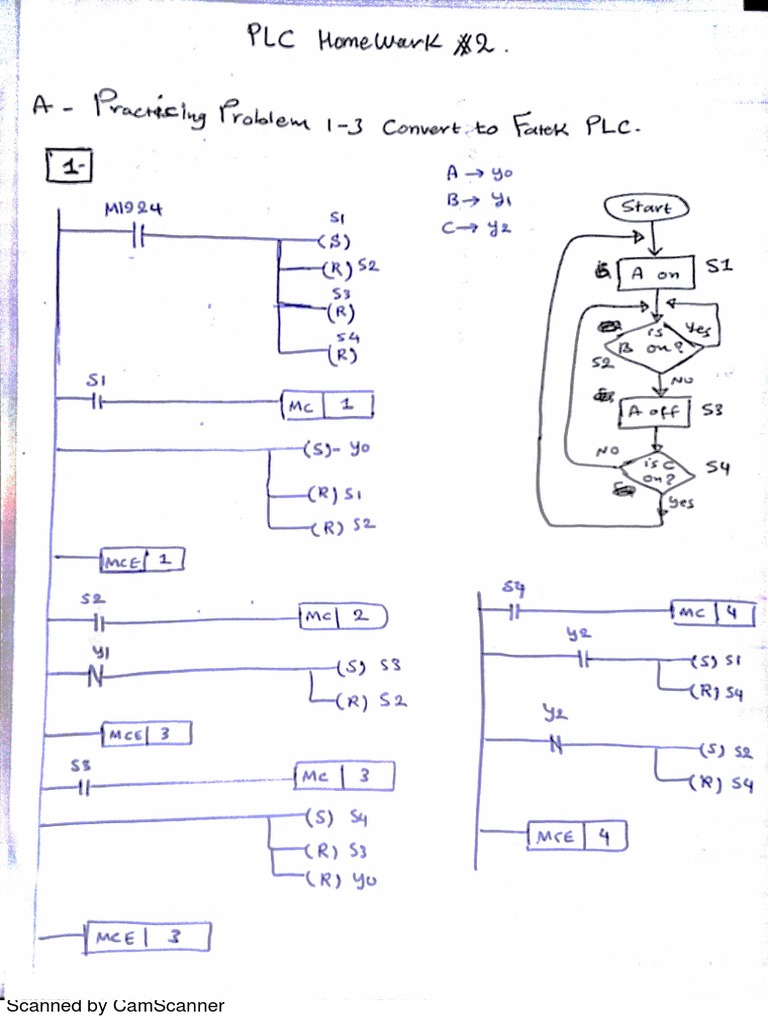 PLC HomeWork #2.
A - Practicing Problem 1-3 Convert to Fatek PLC.
1-
A → y0
B → y1
C → y2
M1924
S1
(S)
(R) S2
S3
(R)
S4
(R)
S1
MC 1
(S)- y0
(R) S1
(R) S2
MCE 1
S2
MC 2
y1
(S) S3
(R) S2
MCE 3
S3
MC 3
(S) S4
(R) S3
(R) y0
MCE 3
Start
A on S1
is
B on?
Yes
S2
NO
A off S3
NO
is C
on?
S4
Yes
S4
MC 4
y2
(S) S1
(R) S4
y2
(S) S2
(R) S4
MCE 4
Scanned by CamScanner